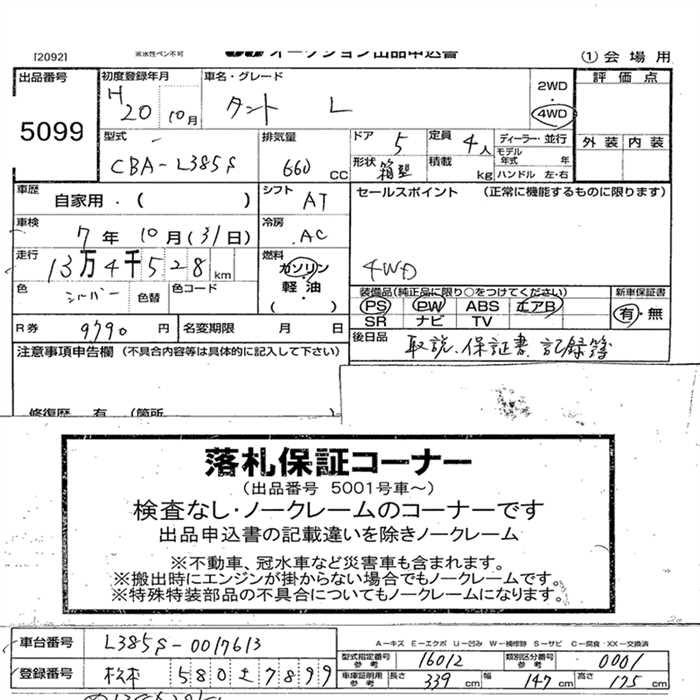 [2092] 水性ペン不可 オークション出品申込書 ①会場用
出品番号 初度登録年月 車名・グレード 2WD 評価点
5099 H20 10月 タント L 4WD
型式 排気量 ドア 5 定員 4人 ディーラー・並行 外装 内装
CBA-L385S 660CC 形状 箱型 積載 kg モデル年式 年 ハンドル 左・右
車歴 自家用・( ) シフト AT セールスポイント (正常に機能するものに限ります)
車検 7年10月(31)日 冷房 AC
走行 13万4千528km 燃料 ガソリン 軽油・( ) 4WD
色 シルバー 色替 色コード 装備品(純正品に限り○をつけてください) 新車保証書
PS PW ABS エアB 有・無
SR ナビ TV
R券 9790円 名変期限 月 日 後日品 取説、保証書、記録簿
注意事項申告欄(不具合内容等は具体的に記入して下さい)
修復歴 有 (箇所
落札保証コーナー
(出品番号 5001号車~)
検査なし・ノークレームのコーナーです
出品申込書の記載違いを除きノークレーム
※不動車、冠水車など災害車も含まれます。
※搬出時にエンジンが掛からない場合でもノークレームです。
※特殊特装部品の不具合についてもノークレームになります。
A-キズ E-エクボ U-凹み W-補修跡 S-サビ C-腐食・XX-交換済
車台番号 L385S-0017613 型式指定番号 参考 16012 類別区分番号 参考 0001
登録番号 松本 580 と 7899 車庫証明用 参考 長さ 339cm 幅 147cm 高さ 175cm